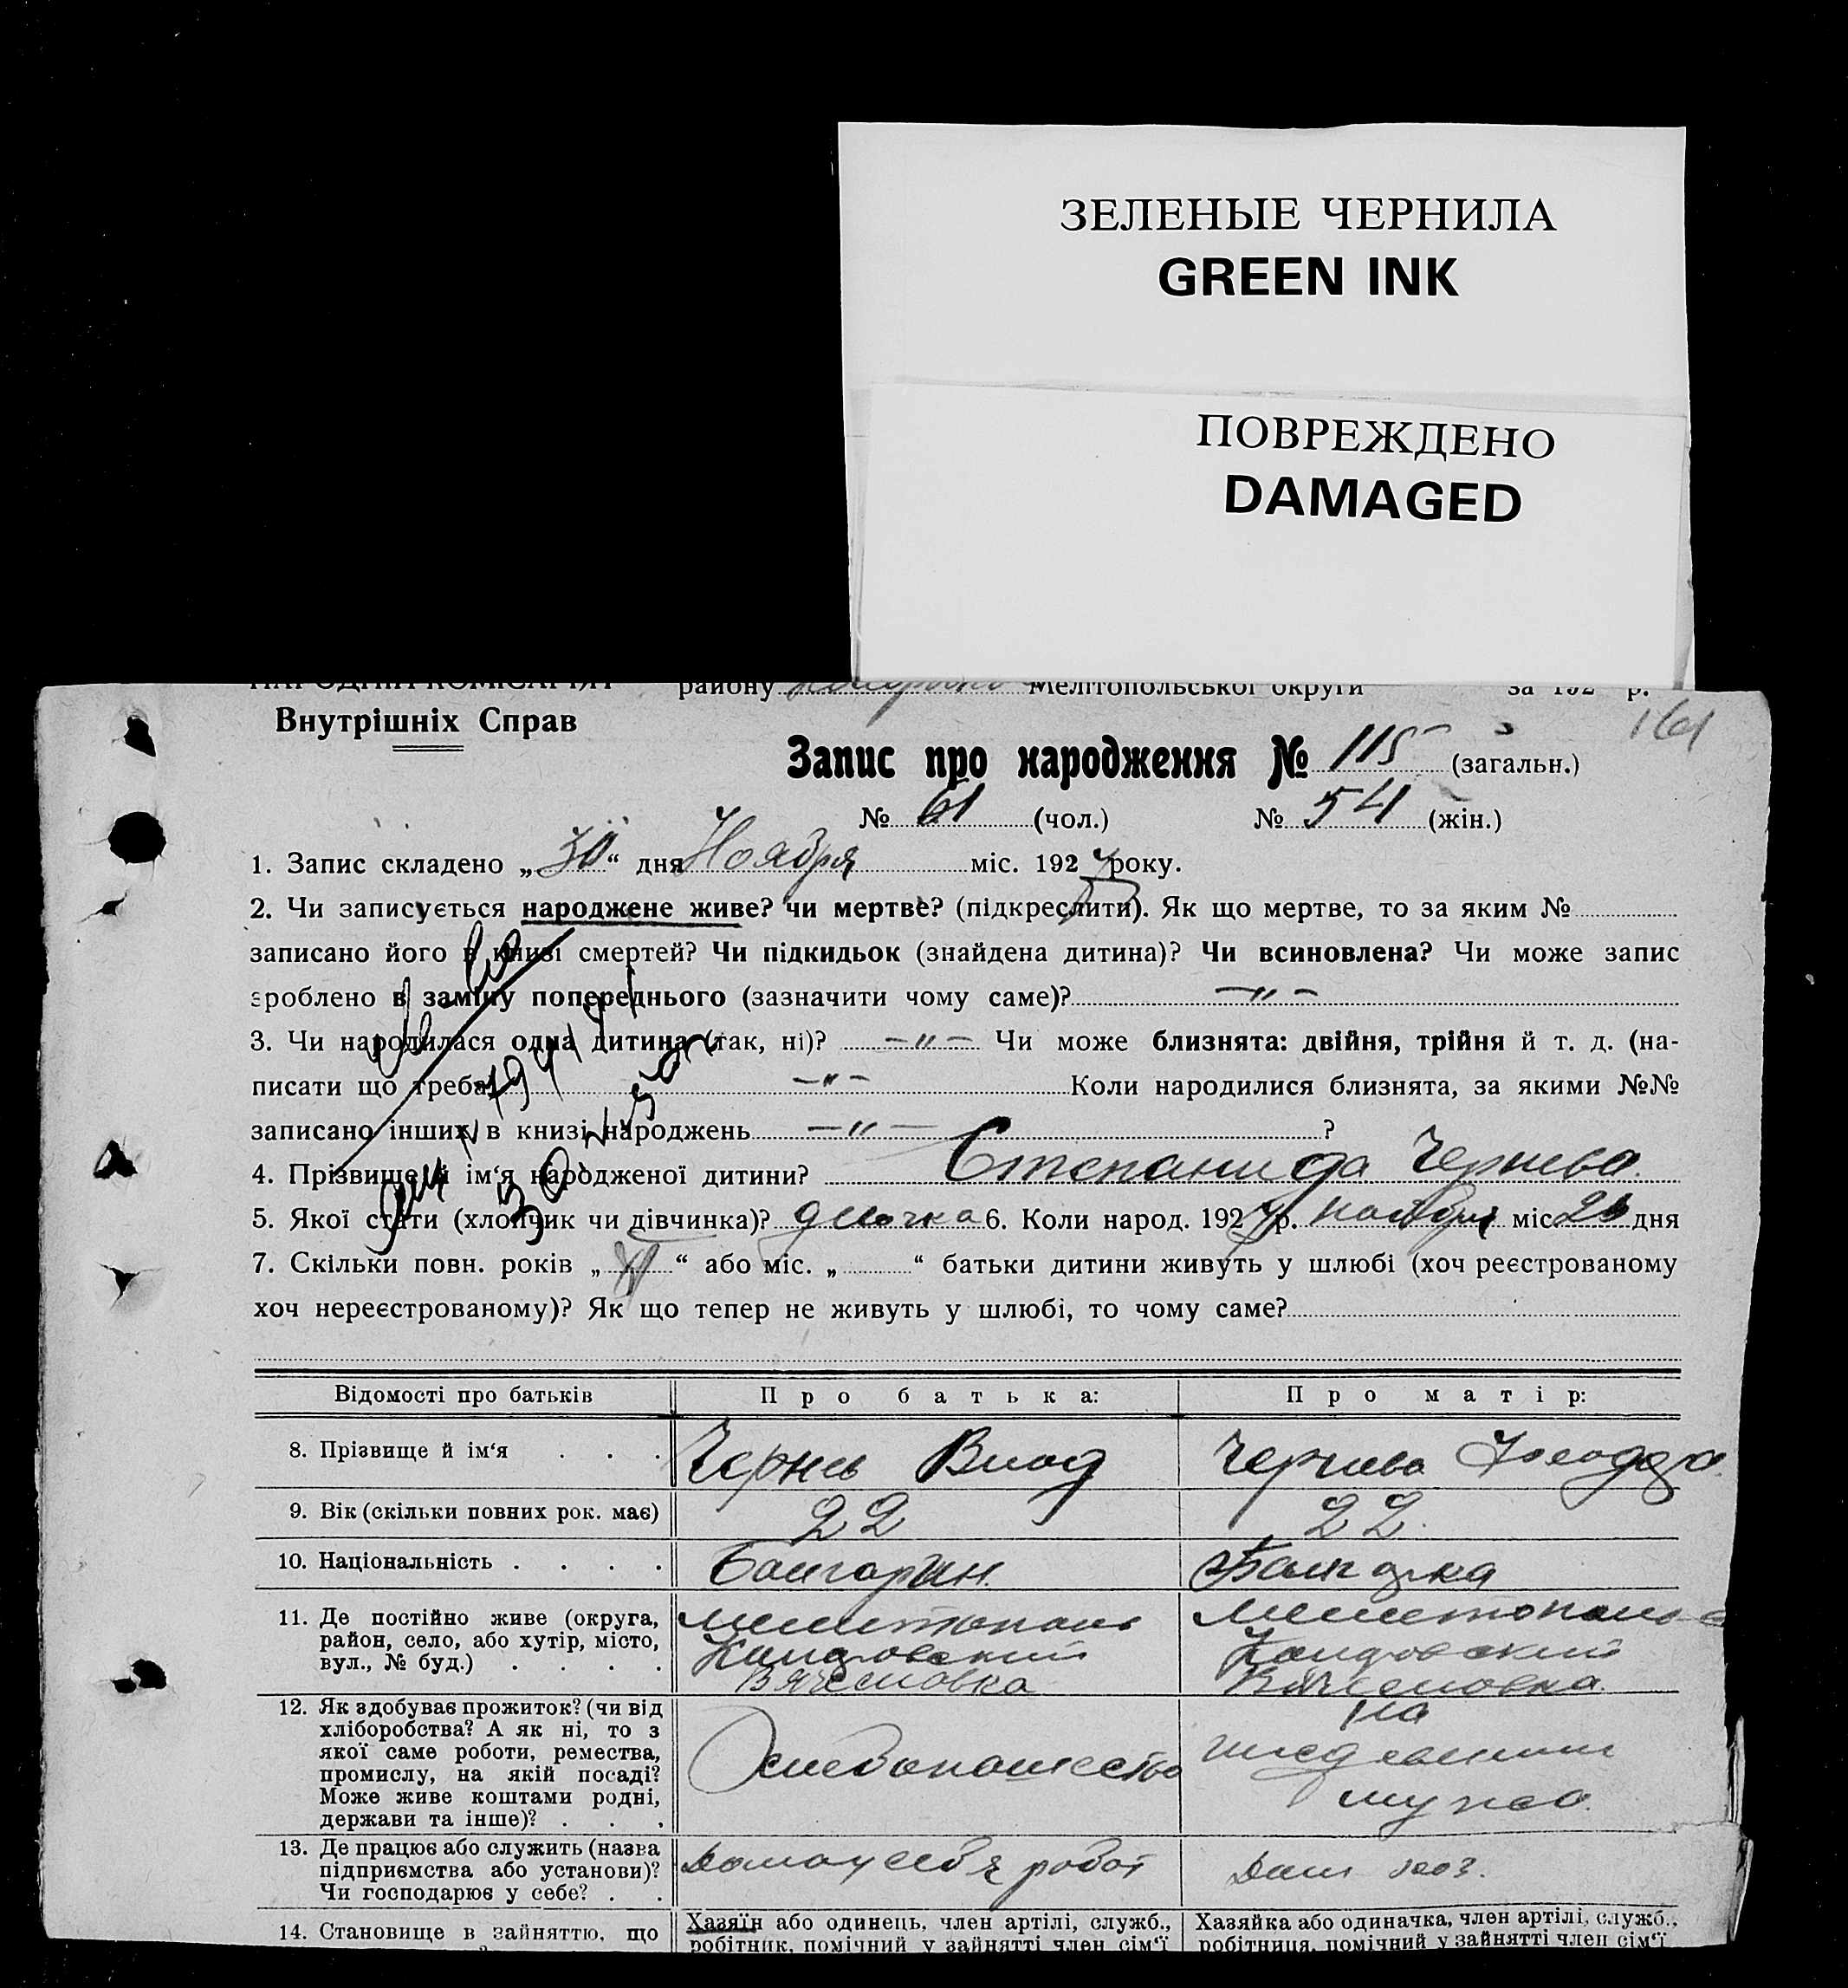 ЗЕЛЕНЫЕ ЧЕРНИЛА
GREEN INK
ПОВРЕЖДЕНО
DAMAGED
НАРОДНІЙ КОМІСАРІЯТ району Мелітопольської округи за 192 р.
Внутрішніх Справ
161
Запис про народження № 115 (загальн.)
№ 61 (чол.) № 54 (жін.)
1. Запис складено „30“ дня Ноября міс. 1927 року.
2. Чи записується народжене живе? чи мертве? (підкреслити). Як що мертве, то за яким №
записано його в книзі смертей? Чи підкидьок (знайдена дитина)? Чи всиновлена? Чи може запис
зроблено в заміну попереднього (зазначити чому саме)? —„—
3. Чи народилася одна дитина (так, ні)? —„— Чи може близнята: двійня, трійня й т. д. (на-
писати що треба) —„— Коли народилися близнята, за якими №№
записано інших в книзі народжень —„— ?
4. Прізвище й ім‘я народженої дитини? Степанида Чернева.
5. Якої стати (хлопчик чи дівчинка)? 6. Коли народ. 1927 р. ноября міс. дня
7. Скільки повн. років „ “ або міс. „ “ батьки дитини живуть у шлюбі (хоч реєстрованому
хоч нереєстрованому)? Як що тепер не живуть у шлюбі, то чому саме?
Відомості про батьків Про батька: Про матір:
8. Прізвище й ім‘я . . . Чернев Влад Чернева
9. Вік (скільки повних рок. має) 22 22.
10. Національність . . . . Болгарин. Болгарка
11. Де постійно живе (округа,
район, село, або хутір, місто,
вул., № буд.) . . . .
Мелитополь
Вячеславка
Вячеславка
12. Як здобуває прожиток? (чи від
хліборобства? А як ні, то з
якої саме роботи, ремества,
промислу, на якій посаді?
Може живе коштами родні,
держави та інше)? . . .
Хлебопашество
На
иждевении
мужа.
13. Де працює або служить (назва
підприємства або установи)?
Чи господарює у себе? . .
Дома у себя работ
Дом хоз.
14. Становище в зайняттю, що
Хазяїн або одинець, член артілі, служб.,
робітник, помічний у зайнятті член сім‘ї
Хазяйка або одиначка, член артілі, служб.,
робітниця, помічний у зайнятті член сім‘ї